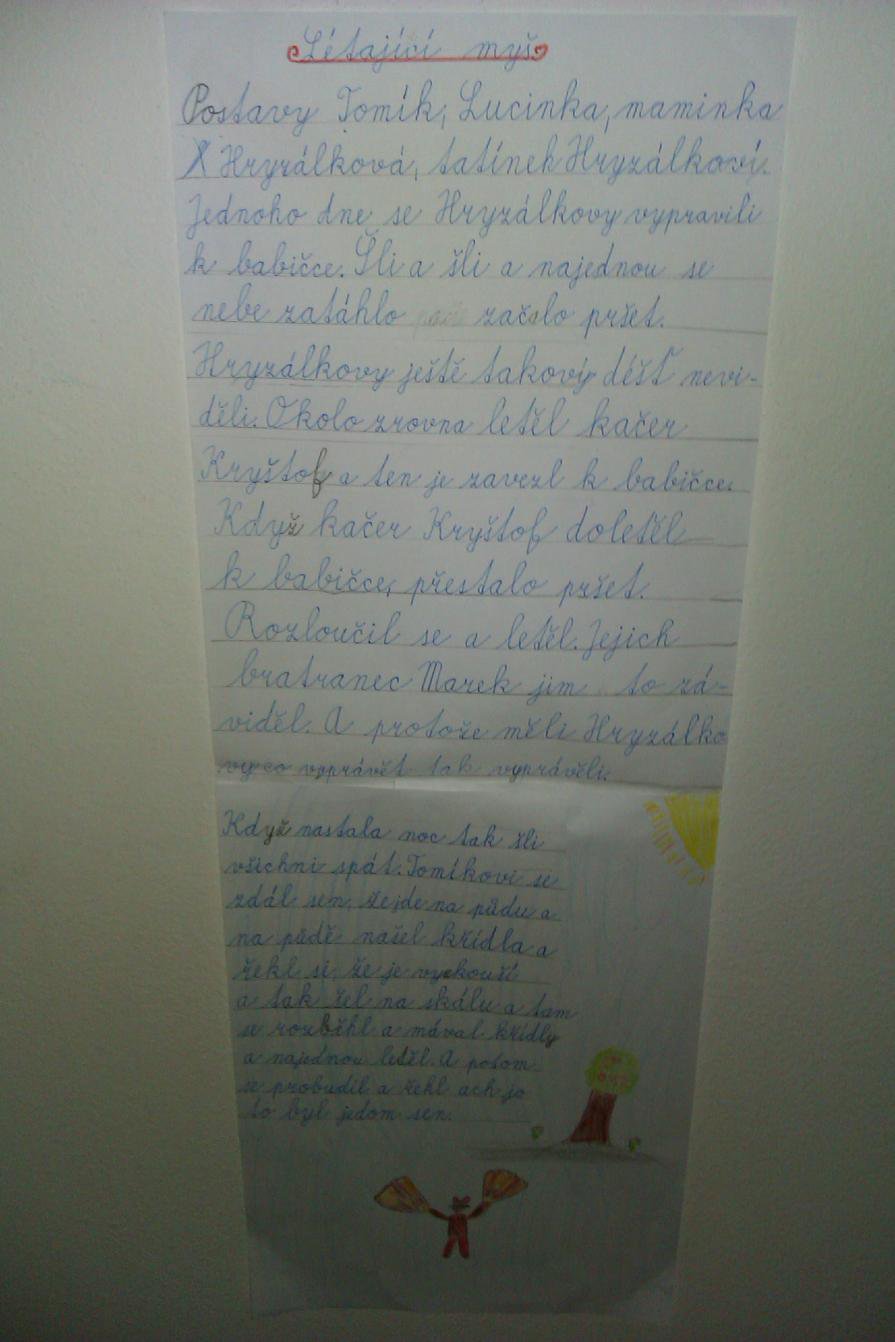 Létající myš
Postavy Tomík, Lucinka, maminka
Hryzálková, tatínek Hryzálkoví.
Jednoho dne se Hryzálkovy vypravili
k babičce. Šli a šli a najednou se
nebe zatáhlo začalo pršet.
Hryzálkovy ještě takový déšť nevi-
děli. Okolo zrovna letěl kačer
Kryštof a ten je zavezl k babičce.
Když kačer Kryštof doletěl
k babičce, přestalo pršet.
Rozloučil se a letěl. Jejich
bratranec Marek jim to zá-
viděl. A protože měli Hryzálko
vy co vyprávět tak vyprávěli.
Když nastala noc tak šli
všichni spát. Tomíkovi se
zdál sen, že jde na půdu a
na půdě našel křídla a
řekl si, že je vyskouší
a tak šel na skálu a tam
se rozběhl a mával křídly
a najednou letěl. A potom
se probudil a řekl ach jo
to byl jedom sen.